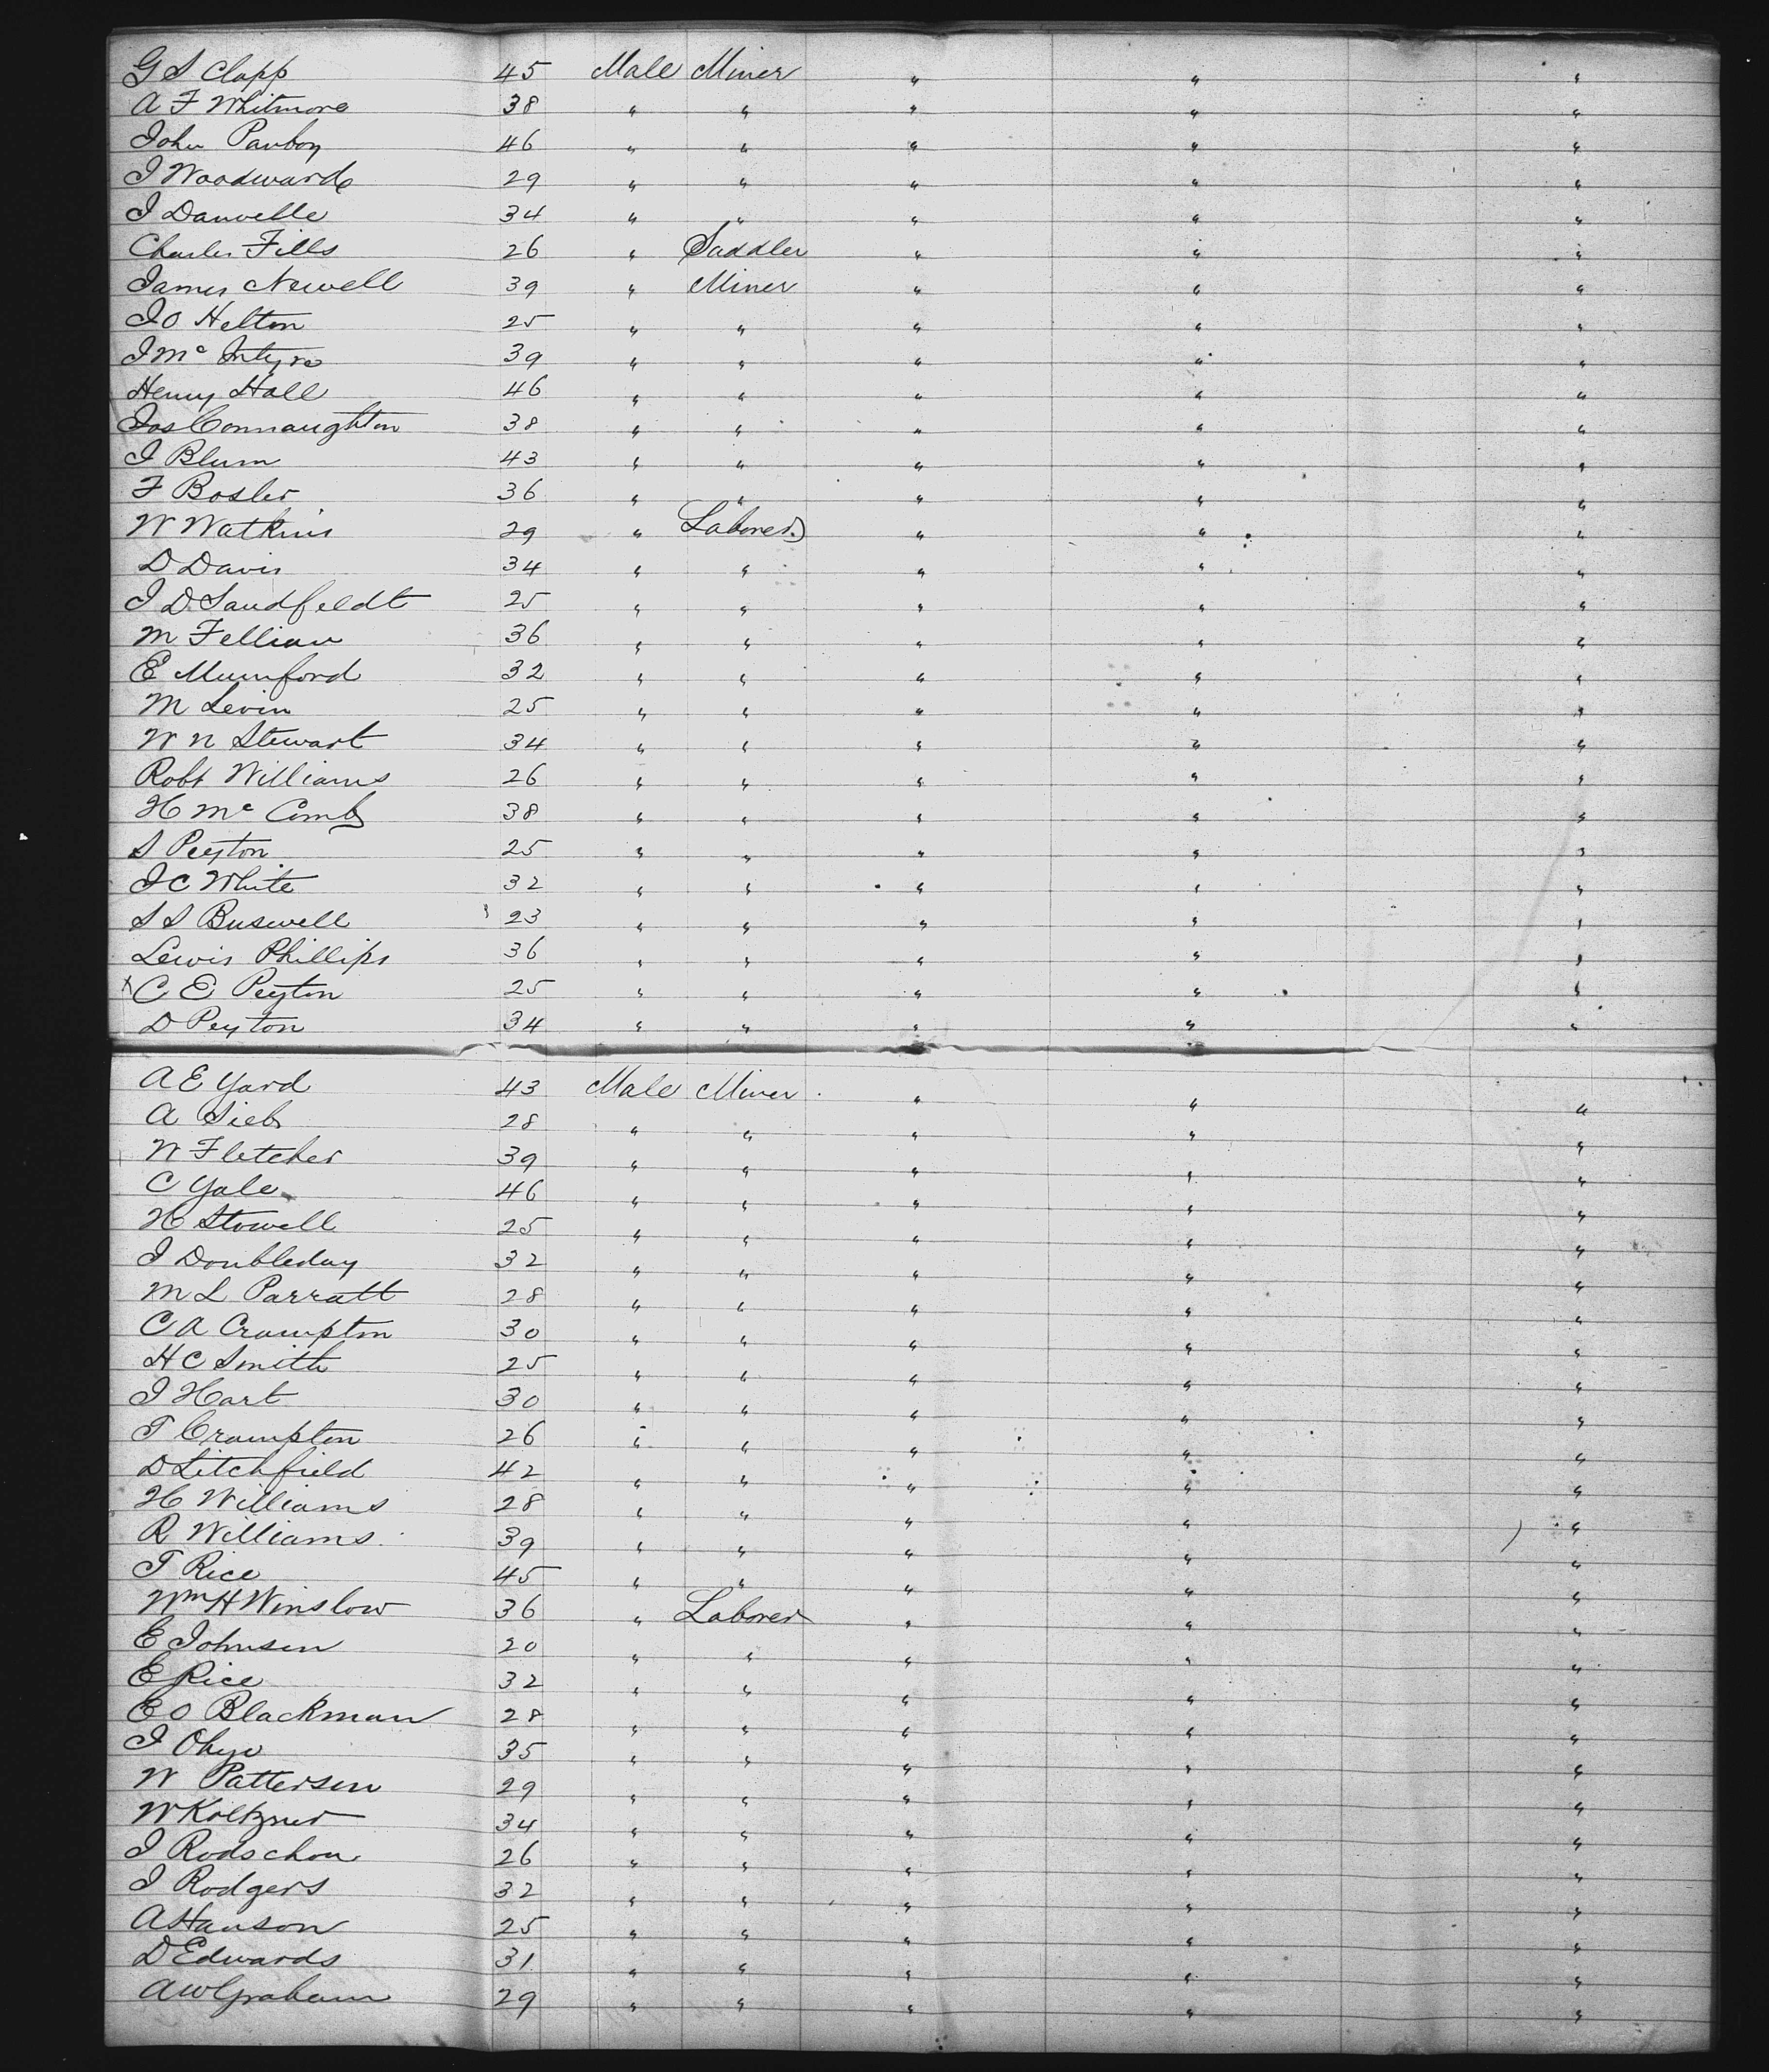 G S Clapp 45 Male Miner " " "
A F Whitmore 38 " " " " "
John Panboy 46 " " " " "
J Woodward 29 " " " " "
J Danvelle 34 " " " " "
Charles Fills 26 " Saddler " " "
James Newell 39 " Miner " " "
J O Helton 25 " " " " "
J Mc Intyre 39 " " " " "
Henry Hall 46 " " " " "
Jos Connaughton 38 " " " " "
J Blum 43 " " " " "
F Bosler 36 " " " " "
W Watkins 29 " Laborer " " "
D Davis 34 " " " " "
J D Sandfeldt 25 " " " " "
M Fellian 36 " " " " "
E Mumford 32 " " " " "
M Levin 25 " " " " "
W N Stewart 34 " " " " "
Robt Williams 26 " " " " "
H Mc Combs 38 " " " " "
S Peyton 25 " " " " "
J C White 32 " " " " "
S S Buswell 23 " " " " "
Lewis Phillips 36 " " " " "
x C E Peyton 25 " " " " "
D Peyton 34 " " " " "
A E Yard 43 Male Miner " " "
A Sieb 28 " " " " "
W Fletcher 39 " " " " "
C Yale 46 " " " " "
H Stowell 25 " " " " "
J Doubleday 32 " " " " "
M L Parratt 28 " " " " "
C A Crampton 30 " " " " "
H C Smith 25 " " " " "
J Hart 30 " " " " "
T Crampton 26 " " " " "
D Litchfield 42 " " " " "
H Williams 28 " " " " "
R Williams 39 " " " " "
T Rice 45 " " " " "
Wm H Winslow 36 " Laborer " " "
E Johnson 20 " " " " "
E Rice 32 " " " " "
E O Blackman 28 " " " " "
J 35 " " " " "
W Patterson 29 " " " " "
W 34 " " " " "
J Rodschou 26 " " " " "
J Rodgers 32 " " " " "
A Hanson 25 " " " " "
D Edwards 31 " " " " "
A W Graham 29 " " " " "